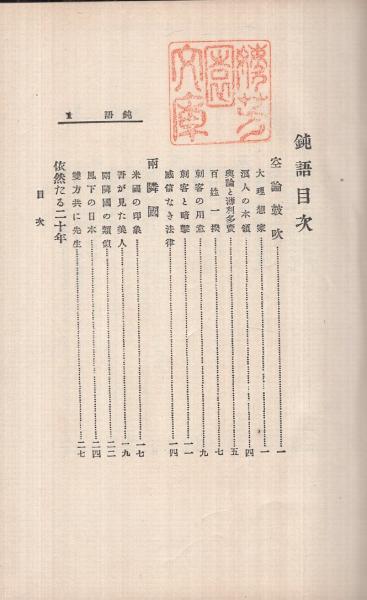 鈍語目次
空論鼓吹……一
大理想家……一
浪人の本領……四
輿論と濤利多賣……五
百姓一揆……七
刺客の用意……九
刺客と暗擊……一一
威信なき法律……一四
兩隣國
米國の印象……一七
吾が見た美人……一九
兩隣國の類似……二二
風下の日本……二四
雙方共に先生……二七
依然たる二十年
目次
鈍語 1
文庫